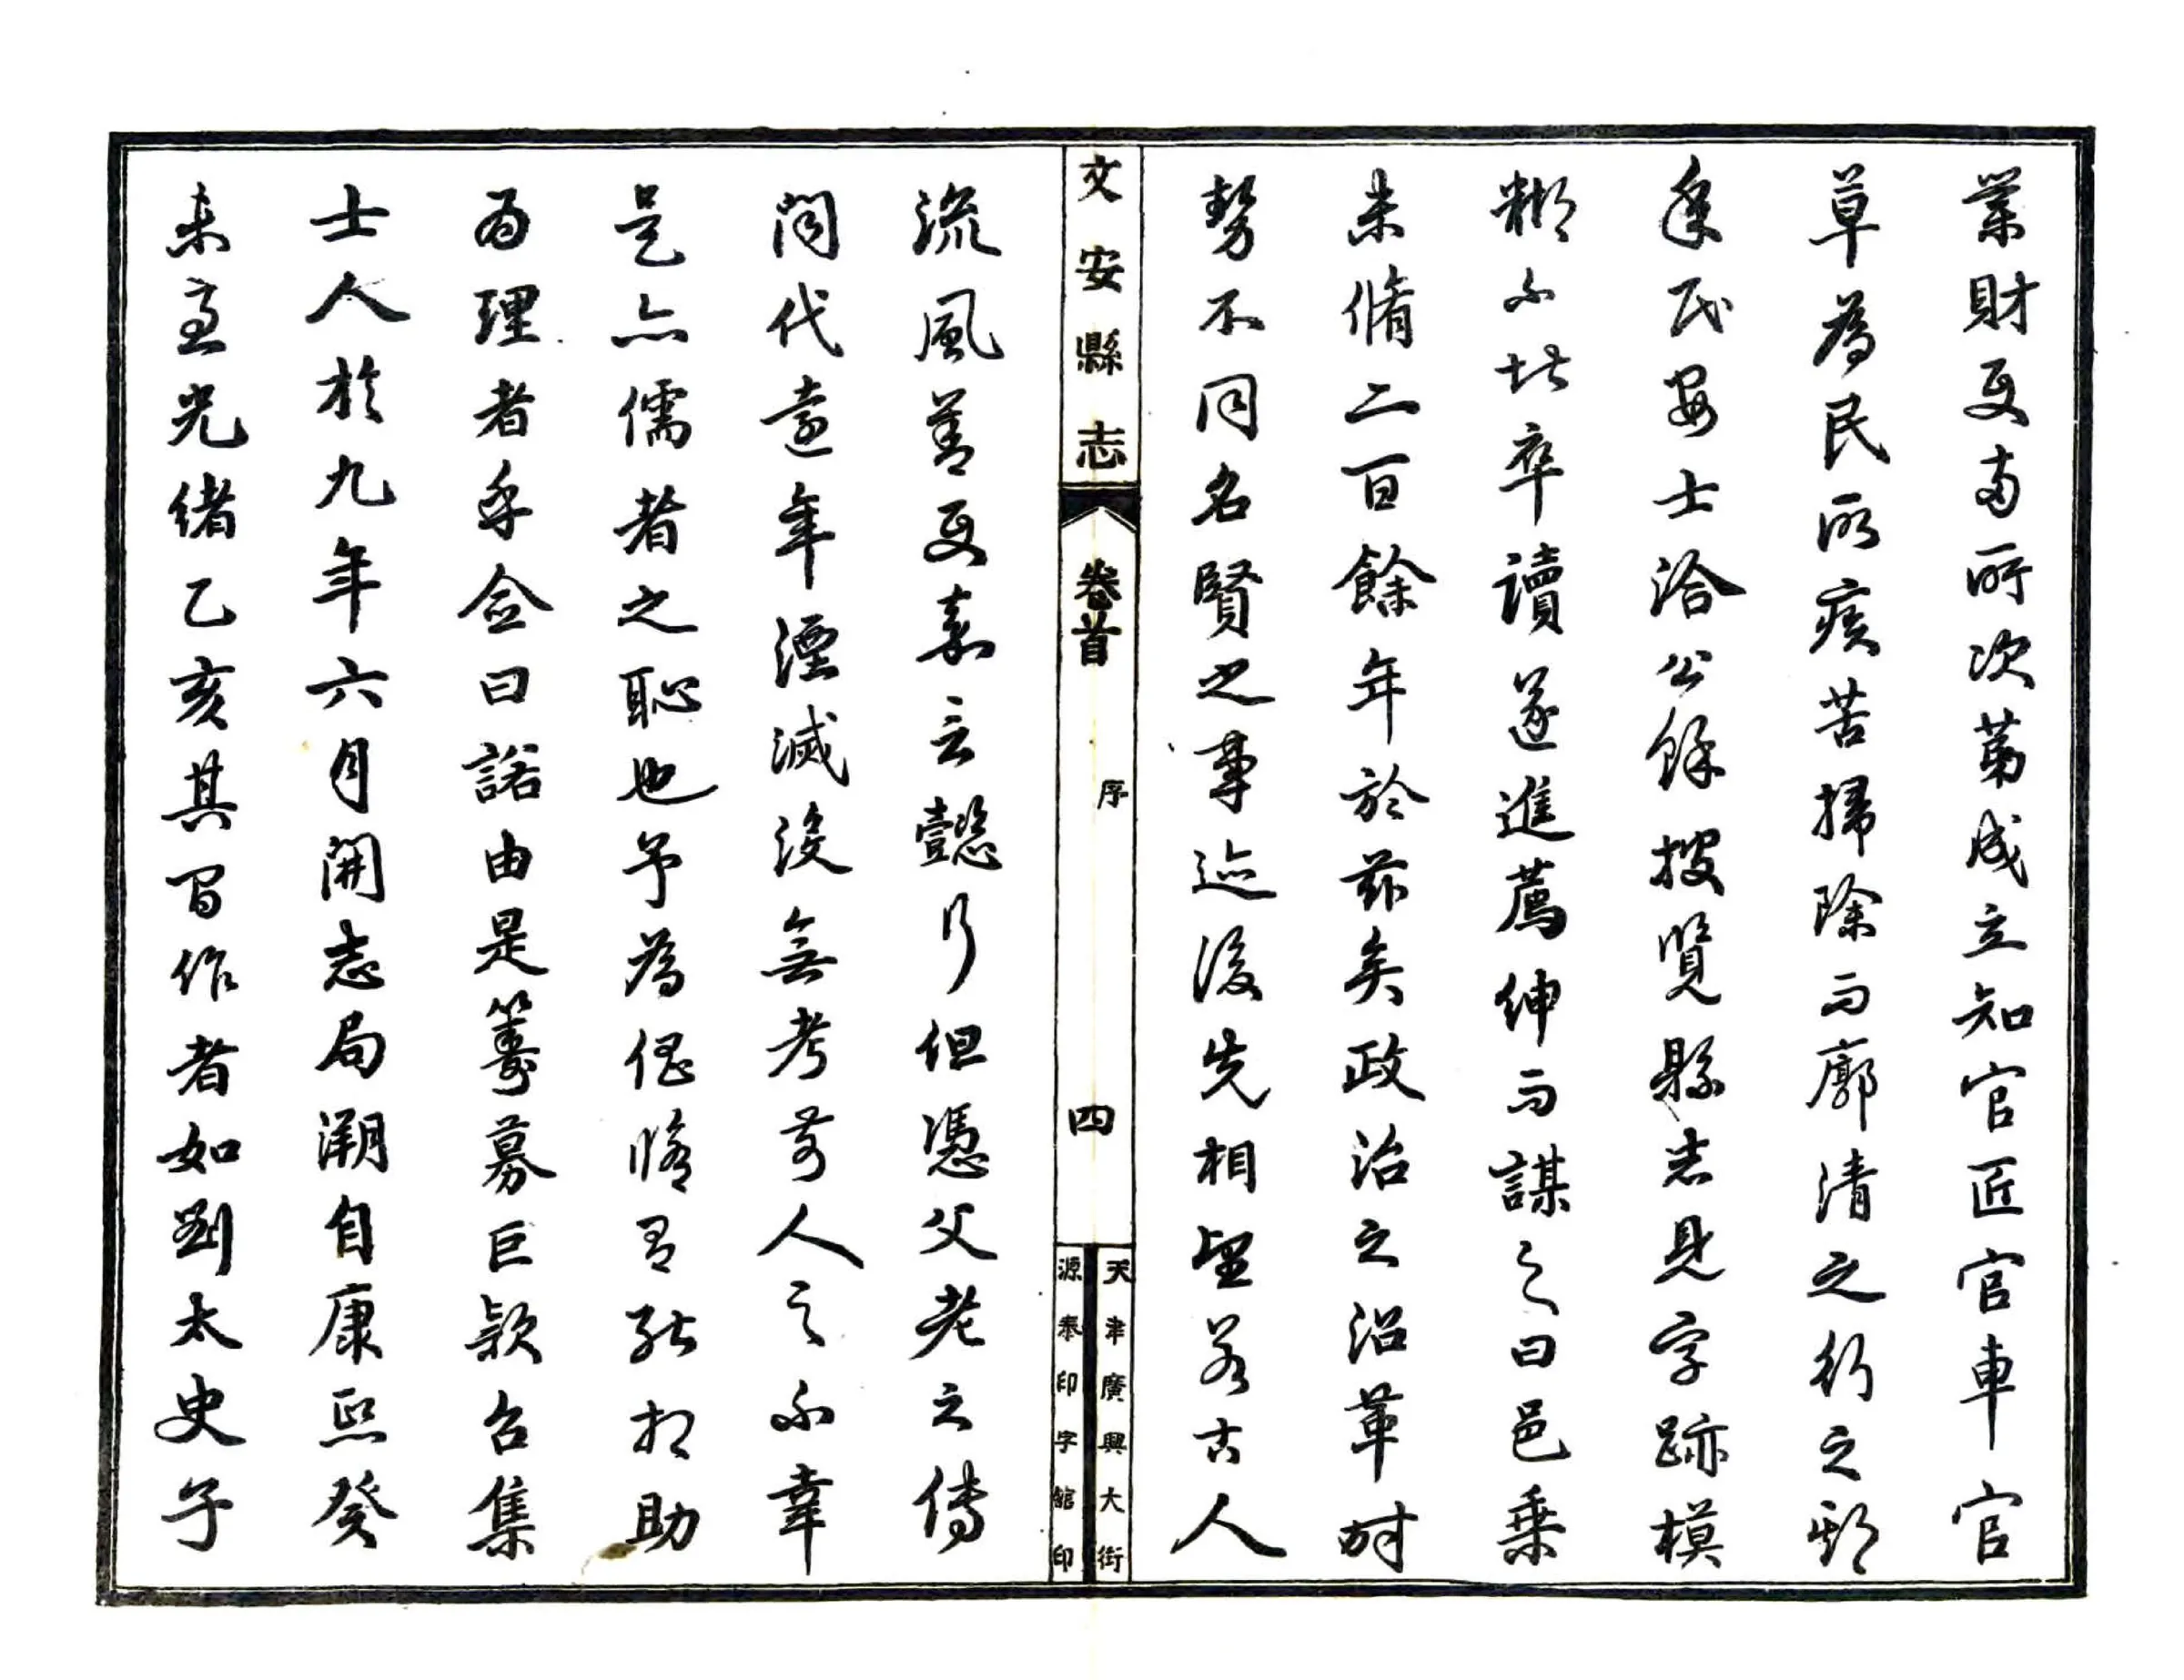 業財政兩所次第成立知官匠官車官
草為民所疾苦掃除而廓清之行之朞
年民安士洽公餘搜覽縣志見字跡模
糊不堪卒讀遂進薦紳而謀之曰邑乘
未脩二百餘年於茲矣政治之沿革時
勢不同名賢之事迹後先相望若古人
文安縣志
卷首
序
四
天津廣興大街
源泰印字館印
流風善政嘉言懿行但憑父老之傳
聞代遠年湮滅沒無考前人之不幸
是亦儒者之恥也予為倡脩有能相助
為理者乎僉曰諾由是籌募巨款召集
士人於九年六月開志局溯自康熙癸
未至光緒乙亥其間作者如劉太史子